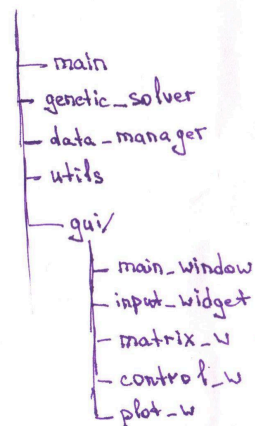 main
genetic_solver
data_manager
utils
gui/
main_window
input_widget
matrix_w
control_w
plot_w